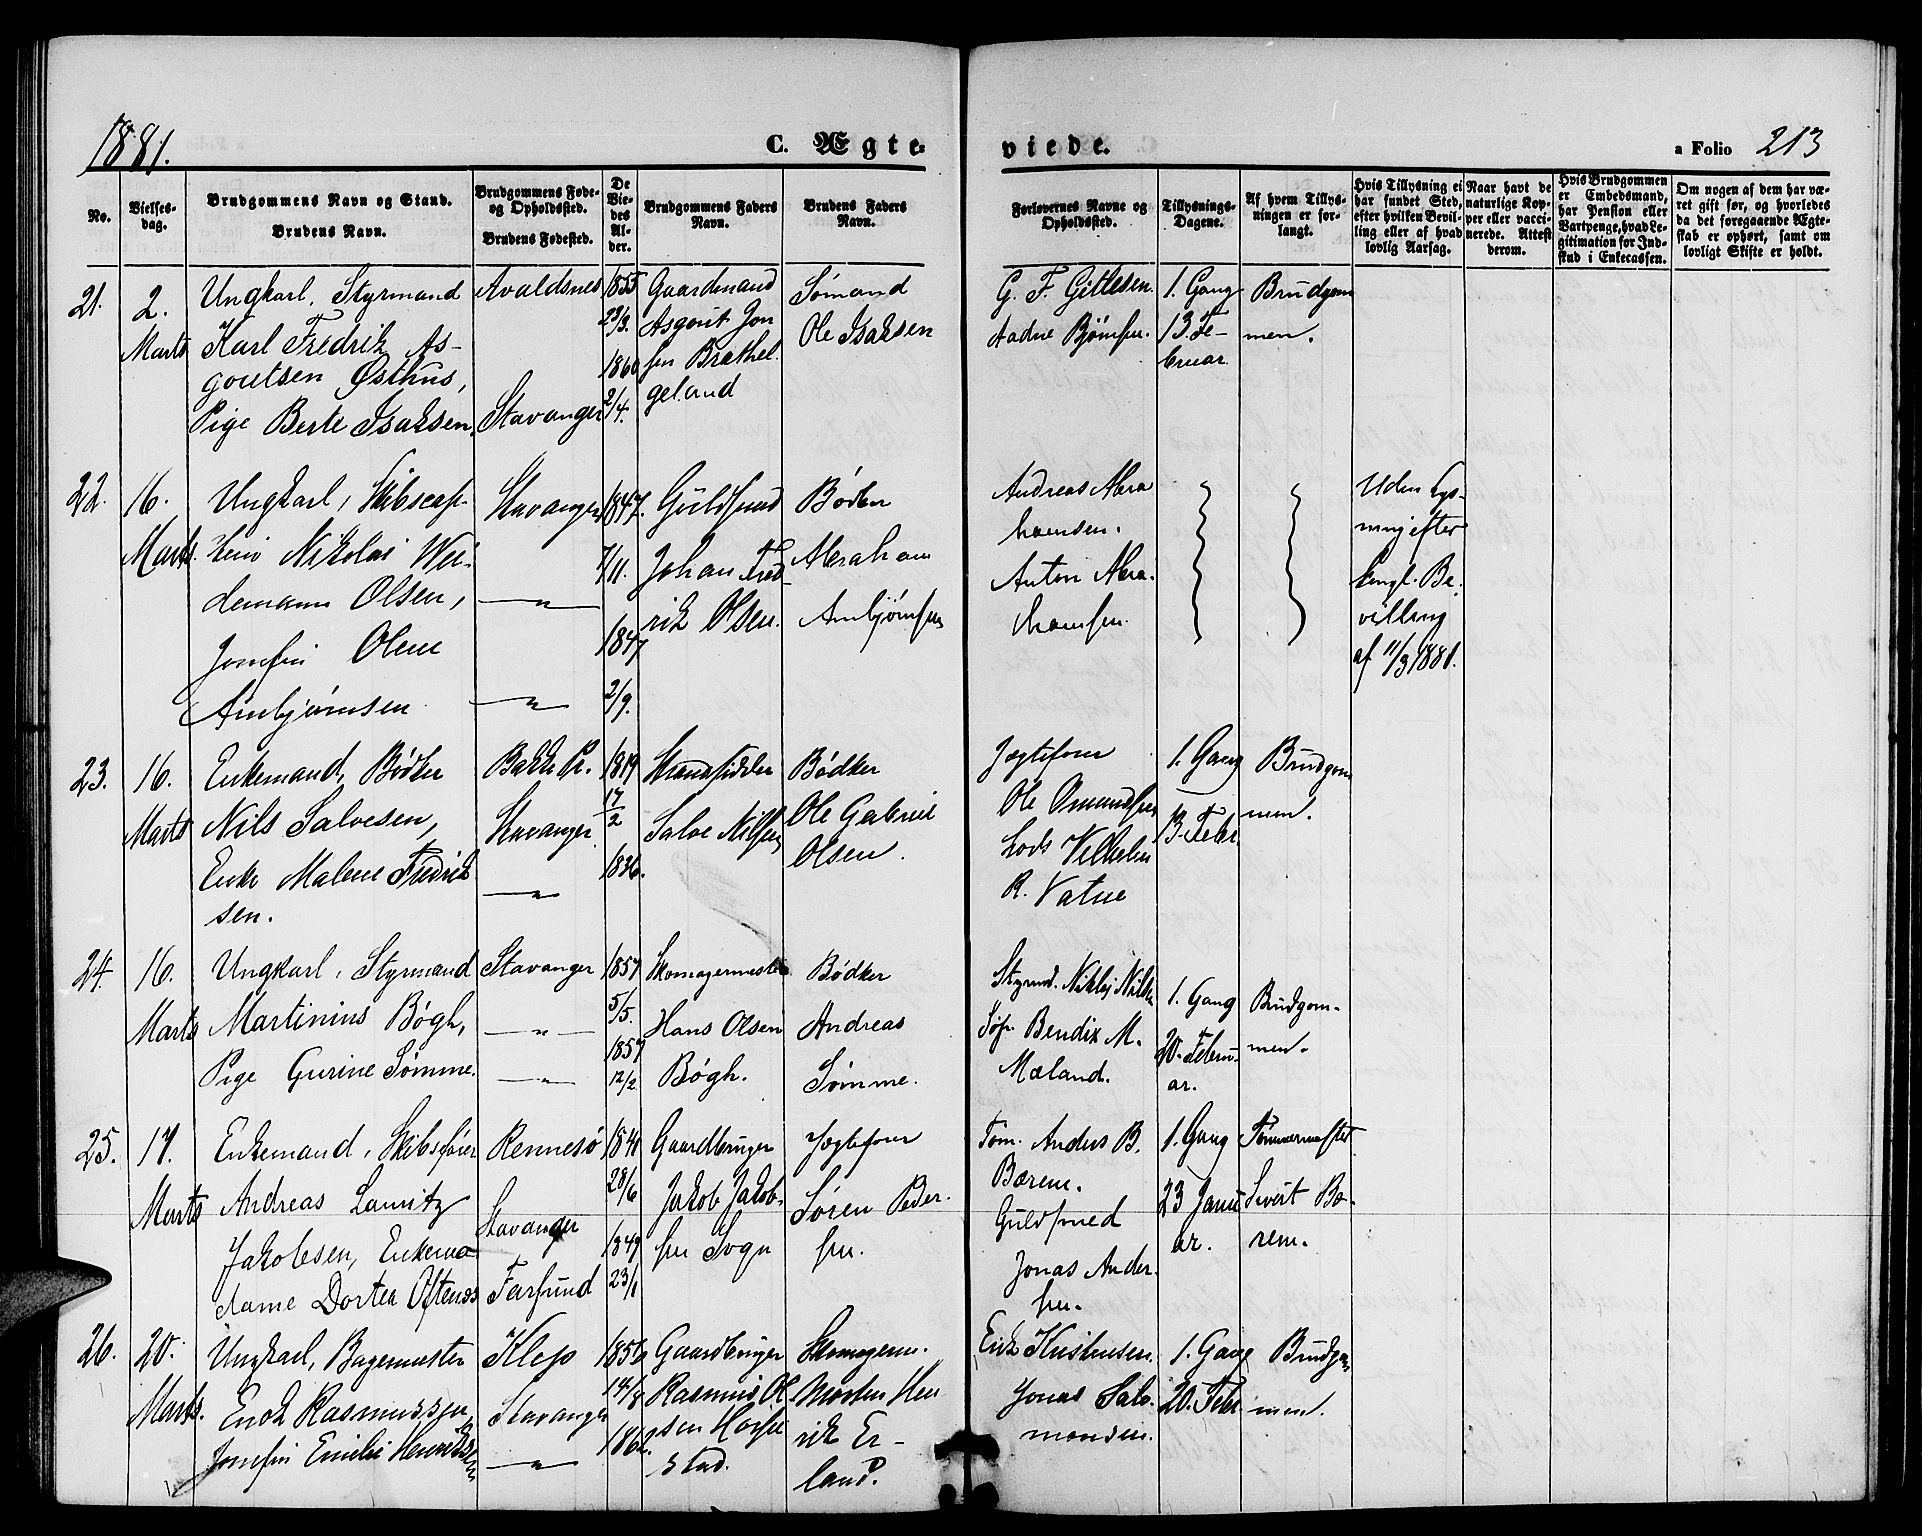 1881.
C. Ægte-
viede.
a Folio 213
No.
Vielses-
dag.
Brudgommens Navn og Stand.
Brudens Navn.
Brudgommens Føde-
og Opholdssted.
Brudens Fødested.
De
Vie-
des
Al-
der.
Brudgommens Faders
Navn.
Brudens Faders
Navn.
Forlovernes Navne og
Opholdssted.
Tillysnings-
Dagene.
Af hvem Tillys-
ningen er for-
langt.
Hvis Tillysning ei
har fundet Sted,
efter hvilken Bevil-
ling eller af hvad
lovlig Aarsag.
Naar havt de
naturlige Kop-
per eller vacci-
nerede. Attest
derom.
Hvis Brudgommen
er Embedsmand,
har Pension eller
Vartpenge, hvad Le-
gitimation for Ind-
skud i Enkecassen.
Om nogen af dem har væ-
ret gift før, og hvorledes
da det foregaaende Ægte-
skab er ophørt, samt om
lovligt Skifte er holdt.
21.
2.
Marts
Ungkarl, Styrmand
Karl Fredrik As-
goutsen Østhus,
Pige Berte Isaksen.
Avaldsnes
Stavanger
1855
23/3.
1860
2/4.
Gaardmand
Asgout Jon
sen Brathel
geland
Sømand
Ole Isaksen
G. F. Gittesen.
Aadne Bjørnsen.
1. Gang
13. Fe-
bruar.
Brudgom
men.
22.
16.
Marts.
Ungkarl, Skibscap-
tein Nikolai Wei-
demann Olsen,
Josefin Olene
Ambjørnsen
Stavanger
—"—
—"—
1847.
7/11.
1847
2/9.
Guldsmed
Johan Fred-
rik Olsen.
Bødker
Abraham
Ambjørnsen
Andreas Abra
hamsen.
Anton Abra-
hamsen.
Uden Lys-
ning efter
kongl. Be-
villing
af 11/3 1881.
23.
16.
Marts
Enkemand, Bødker
Nils Salvesen,
Enke Malene Fredrik
sen.
Bakke Pr.
Stavanger
—"—
1819
17/2
1836.
Strandsidder
Salve Nilsen
Bødker
Ole Gabriel
Olsen.
Jægtefører
Ole Omundsen
Lods Vilhelm
R. Vatne
1. Gang
13. Febr
Brudgom
men.
24.
16.
Marts
Ungkarl, Styrmand
Martinius Bøgh,
Pige Gurine Sømme.
Stavanger
—"—
—"—
1857
5/5.
1857
12/2
Skomagermester
Hans Olsen
Bøgh.
Bødker
Andreas
Sømme.
Styrmd. Nikolaj Nilsen
Søfr. Bendix M.
Mæland.
1. Gang
20. Febru-
ar.
Brudgom-
men.
25.
17.
Marts
Enkemand, Skibsfører
Andreas Lauritz
Jakobsen, Enkema
dame Dortea Oftenæs
Rennesø
Stavanger
Farsund
1840
28/6
1849
23/1
Gaardbruger
Jakob Jakob-
sen Sogn
Jægtefører
Søren Peder-
sen.
Tom. Anders B.
Børem.
Guldsmed
Jonas Ander-
sen.
1. Gang
23 Janu
ar.
Tømmermester
Sivert Bø-
rem.
26.
20.
Marts.
Ungkarl, Bagermester
Enok Rasmussen
Josefin Emilie Henriksen
Klep
Stavanger
—"—
1856
14/8
1862.
Gaardbruger
Rasmus Ol
sen Horpe
stad.
Skomagerm.
Morten Hen
rik Er-
land.
Erik Kristensen.
Jonas Salo-
monsen.
1. Gang
20. Febr
Brudgom
men.